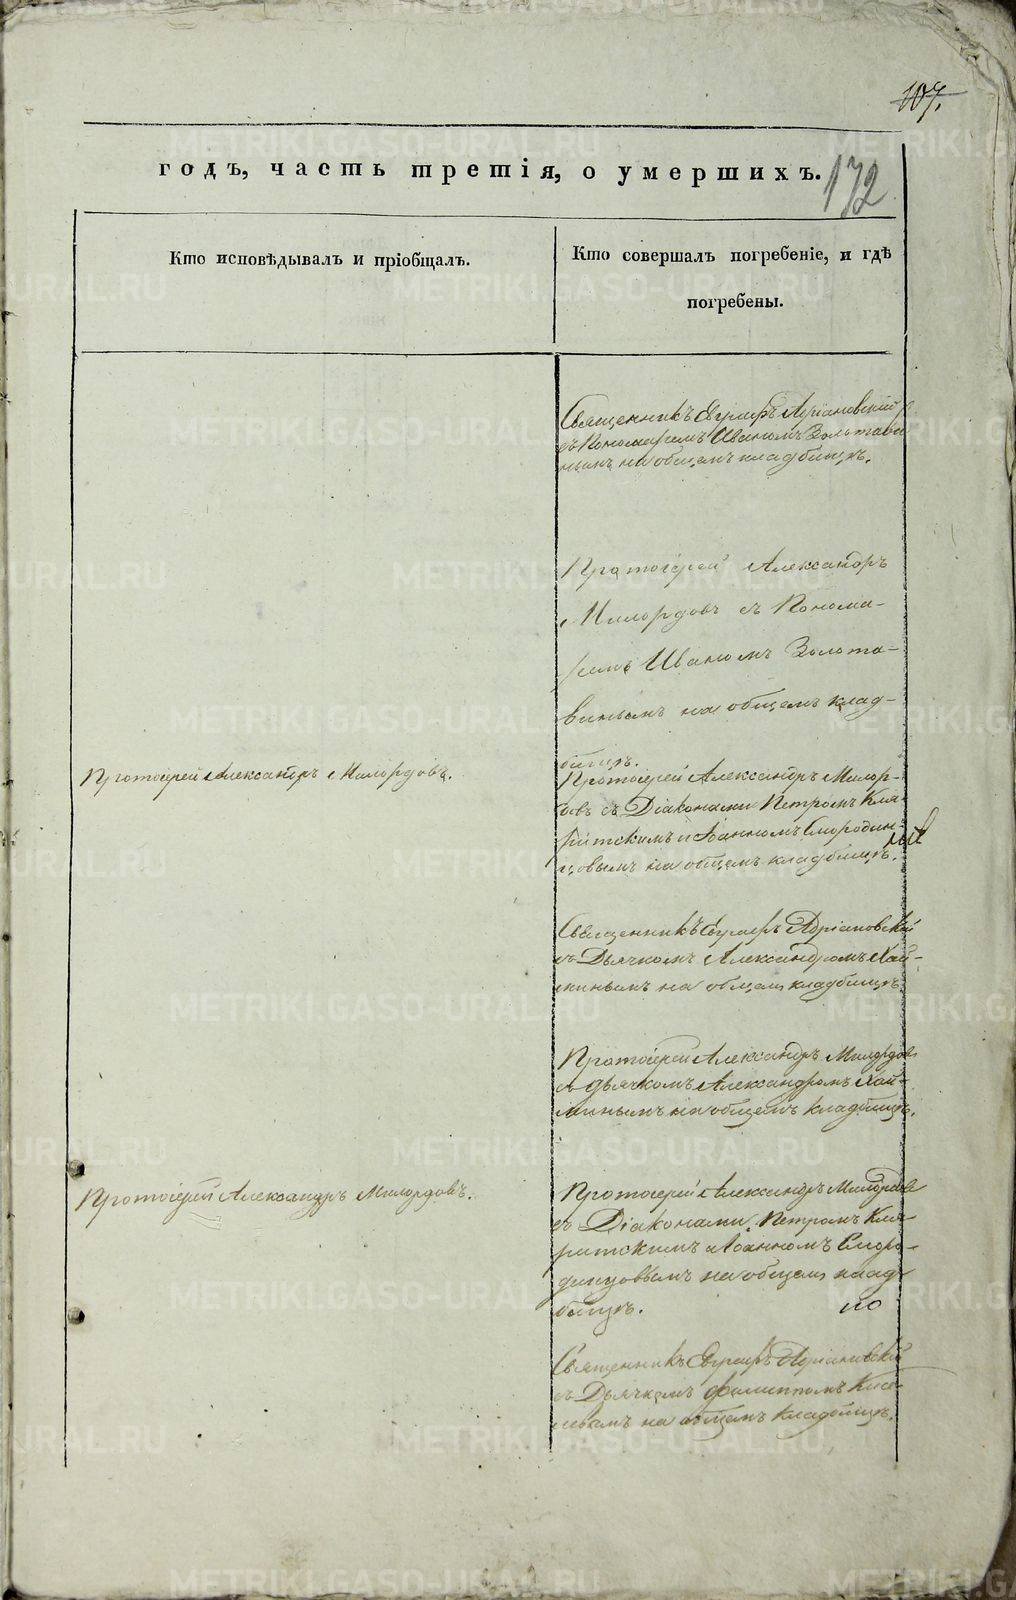 107.
годъ, часть третія, о умершихъ.
172
Кто исповѣдывалъ и пріобщалъ.
Кто совершалъ погребеніе, и гдѣ
погребены.
Священникъ Евграфъ Адріановскій
съ Пономаремъ Иваномъ Золотави
нымъ на общемъ кладбищѣ.
Протоіерей Александръ
Милордовъ съ Понома-
ремъ Иваномъ Золота-
винымъ на общемъ клад-
бищѣ.
Протоіерей Александръ Милордовъ.
Протоіерей Александръ Милор-
довъ съ Діаконами Петромъ Кля-
ритскимъ и Іоанномъ Смородин-
цовымъ на общемъ кладбищѣ.
Священникъ Евграфъ Адріановскій
съ Дьячкомъ Александромъ Хай-
минымъ на общемъ кладбищѣ.
Протоіерей Александръ Милордовъ
съ дьячкомъ Александромъ Хай-
минымъ на общемъ кладбищѣ.
Протоіерей Александръ Милордовъ.
Протоіерей Александръ Милордовъ
съ Діаконами Петромъ Кля-
ритскимъ и Іоанномъ Сморо-
динцовымъ на общемъ клад-
бищѣ.
Священникъ Евграфъ Адріановскій
съ Дьячкомъ Филиппомъ Кисе-
левымъ на общемъ кладбищѣ.
METRIKI.GASO-URAL.RU